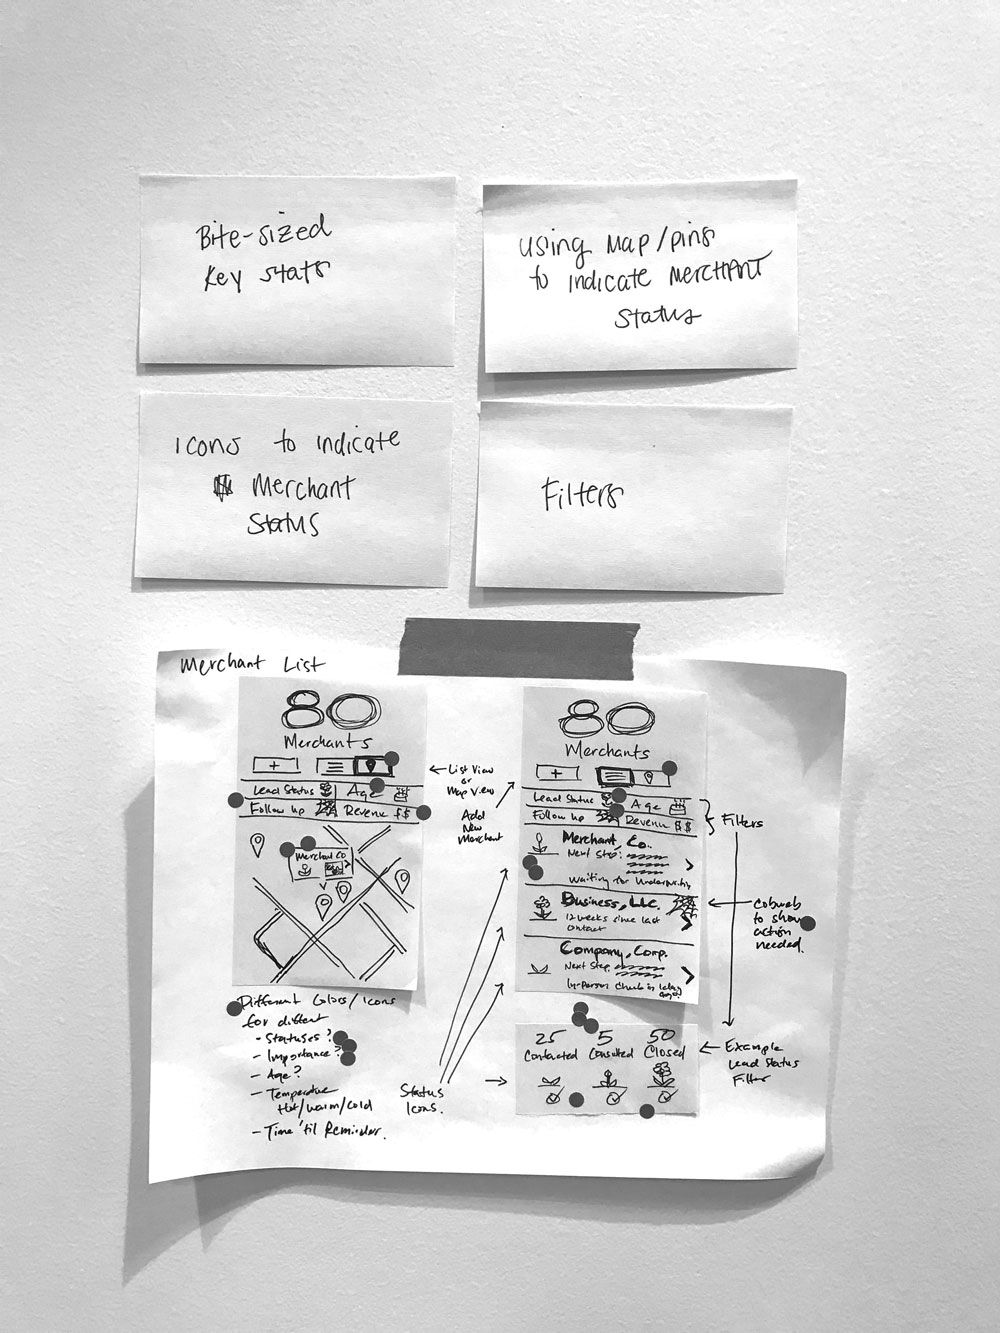 Bite-sized
Key stats
Using Map/pins
to indicate Merchant
Status
Icons to indicate
Merchant
Status
Filters
Merchant List
80
Merchants
+
Lead Status
Age
Follow Up
Revenue $$
Merchant Co
← List View
or
Map View
Add
New
Merchant
80
Merchants
+
Lead Status
Age
Follow Up
Revenue $$
Merchant, Co.
Next Step:
Waiting for Underwriting
Business, LLC.
12 weeks since last
contact
Company, Corp.
Next Step
In-Person Check in
Filters
Cobweb
to show
action
needed.
Different Colors/Icons
for different
- Statuses?
- Importance?
- Age?
- Temperature
Hot/Warm/Cold
- Time 'til Reminder.
Status
Icons.
25 5 50
Contacted Consulted Closed
← Example
Lead Status
Filter